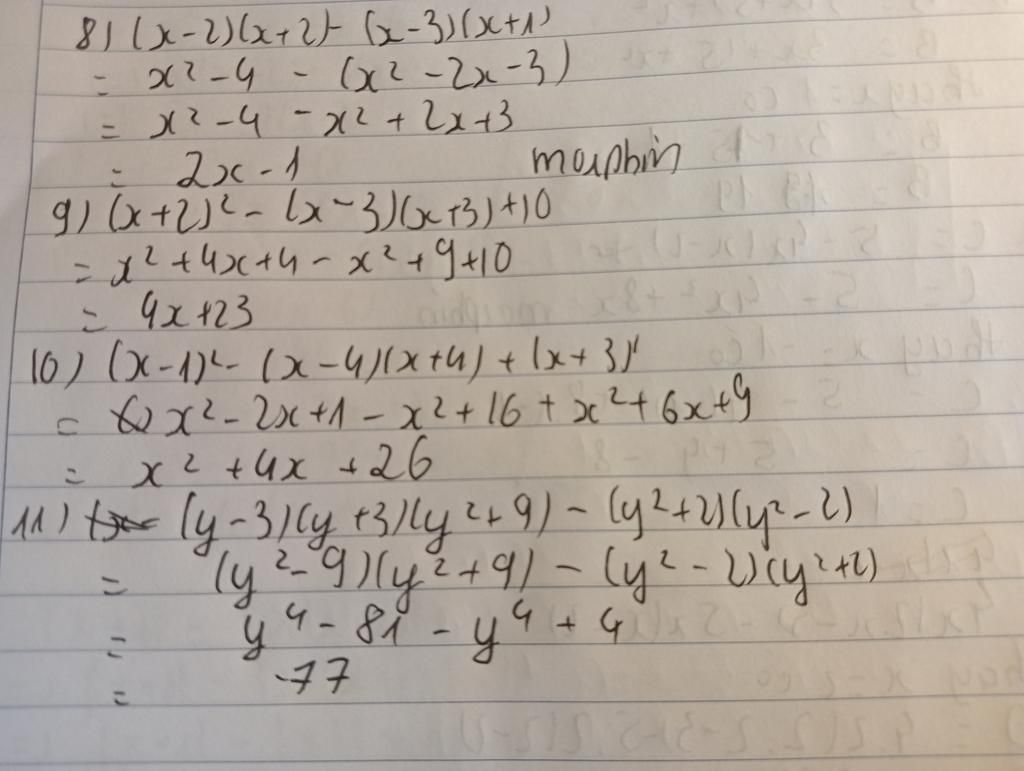 8) (x-2)(x+2) - (x-3)(x+1)
= x² - 4 - (x² - 2x - 3)
= x² - 4 - x² + 2x + 3
= 2x - 1 morphin
9) (x+2)² - (x-3)(x+3) + 10
= x² + 4x + 4 - x² + 9 + 10
= 4x + 23
10) (x-1)² - (x-4)(x+4) + (x+3)²
= x² - 2x + 1 - x² + 16 + x² + 6x + 9
= x² + 4x + 26
11) (y-3)(y+3)(y²+9) - (y²+2)(y²-2)
= (y²-9)(y²+9) - (y²-2)(y²+2)
= y⁴ - 81 - y⁴ + 4
= -77